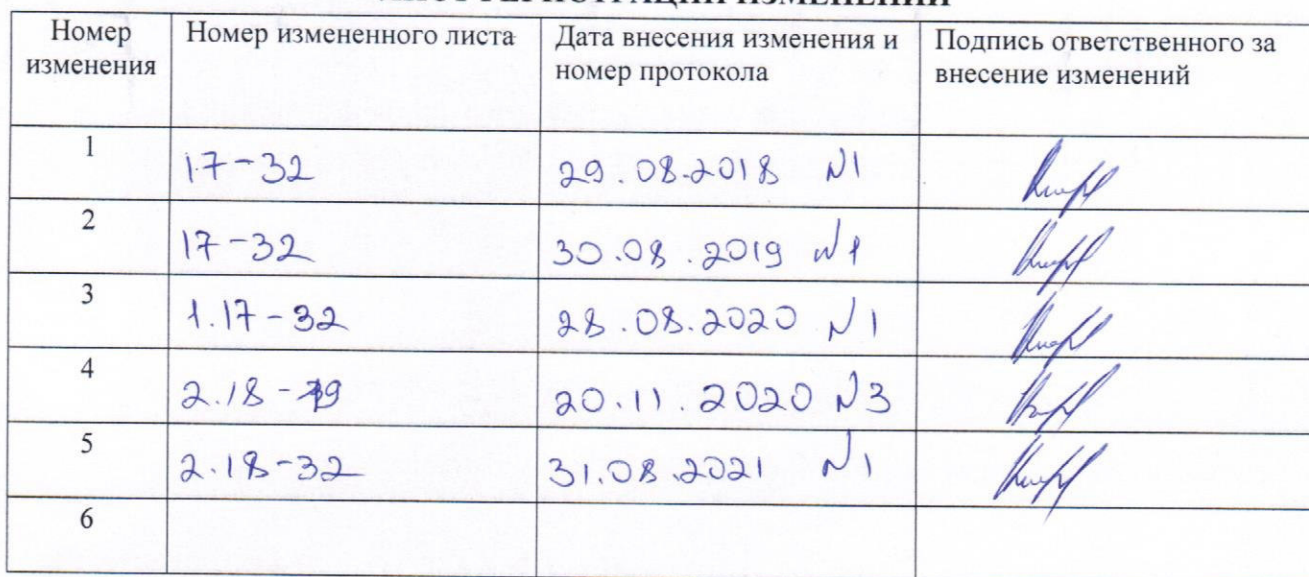 ЛИСТ РЕГИСТРАЦИИ ИЗМЕНЕНИЙ
Номер изменения Номер измененного листа Дата внесения изменения и номер протокола Подпись ответственного за внесение изменений
1 17-32 29.08.2018 №1
2 17-32 30.08.2019 №1
3 1.17-32 28.08.2020 №1
4 2.18- 20.11.2020 №3
5 2.18-32 31.08.2021 №1
6